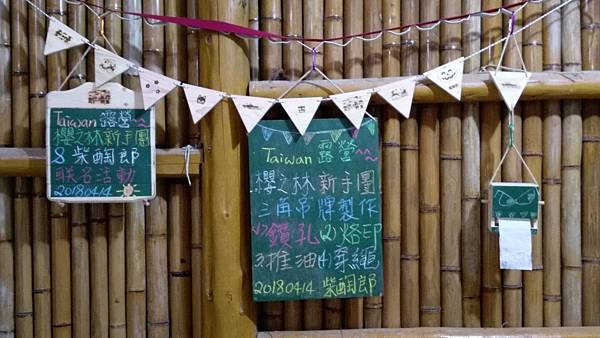 Taiwan 露營~~
櫻之林新手團
& 柴陶郎
聯名活動
20180414
Taiwan 露營~~
櫻之林新手團
三角吊牌製作
(1)鑽孔(2)烙印
(3)推油(4)穿繩
20180414 柴陶郎